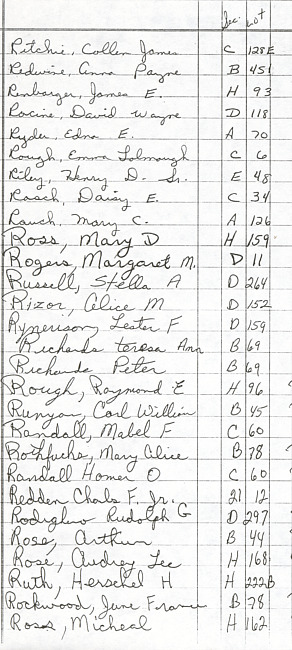 Sec. Lot
Ritchie, Collen James C 128E
Redwine, Anna Payne B 451
Renbarger, James E. H 93
Racine, David Wayne D 118
Ryder, Edna E. A 70
Rough, Emma C 6
Riley, Henry D. Sr. E 48
Rasch, Daisy E. C 34
Rauch, Mary C. A 126
Ross, Mary D H 159
Rogers, Margaret M. D 11
Russell, Stella A D 264
Rizor, Alice M D 152
Rynerison, Lester F D 159
Richards Teresa Ann B 69
Richards Peter B 69
Rough, Raymond E H 96
Runyan, Carl William B 45
Randall, Mabel F C 60
Rothfuchs, Mary Alice B 78
Randall Homer O C 60
Redden Chals F. Jr. 21 12
Rudolph G D 297
Rose, Arthur B 44
Rose, Audrey Lee H 168
Ruth, Herschel H H 222B
Rockwood, June B 78
Ross, Micheal H 162